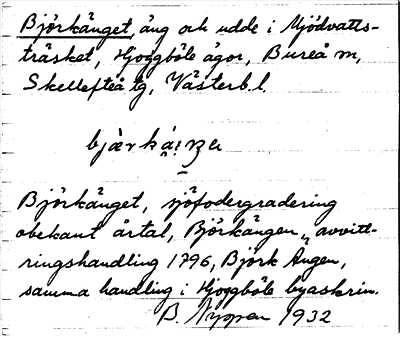 Björkänget, äng och udde i Mjödvatts-
träsket, Hoggböle ägor, Bureå sn,
Skellefteå tg, Västerb. l.
Björkänget, sjöfodergradering
obekant årtal, Björkängen, avvitt-
ringshandling 1796, Björk Ängen,
samma handling i Hoggböle byaskrin.
B. Nyppen 1932